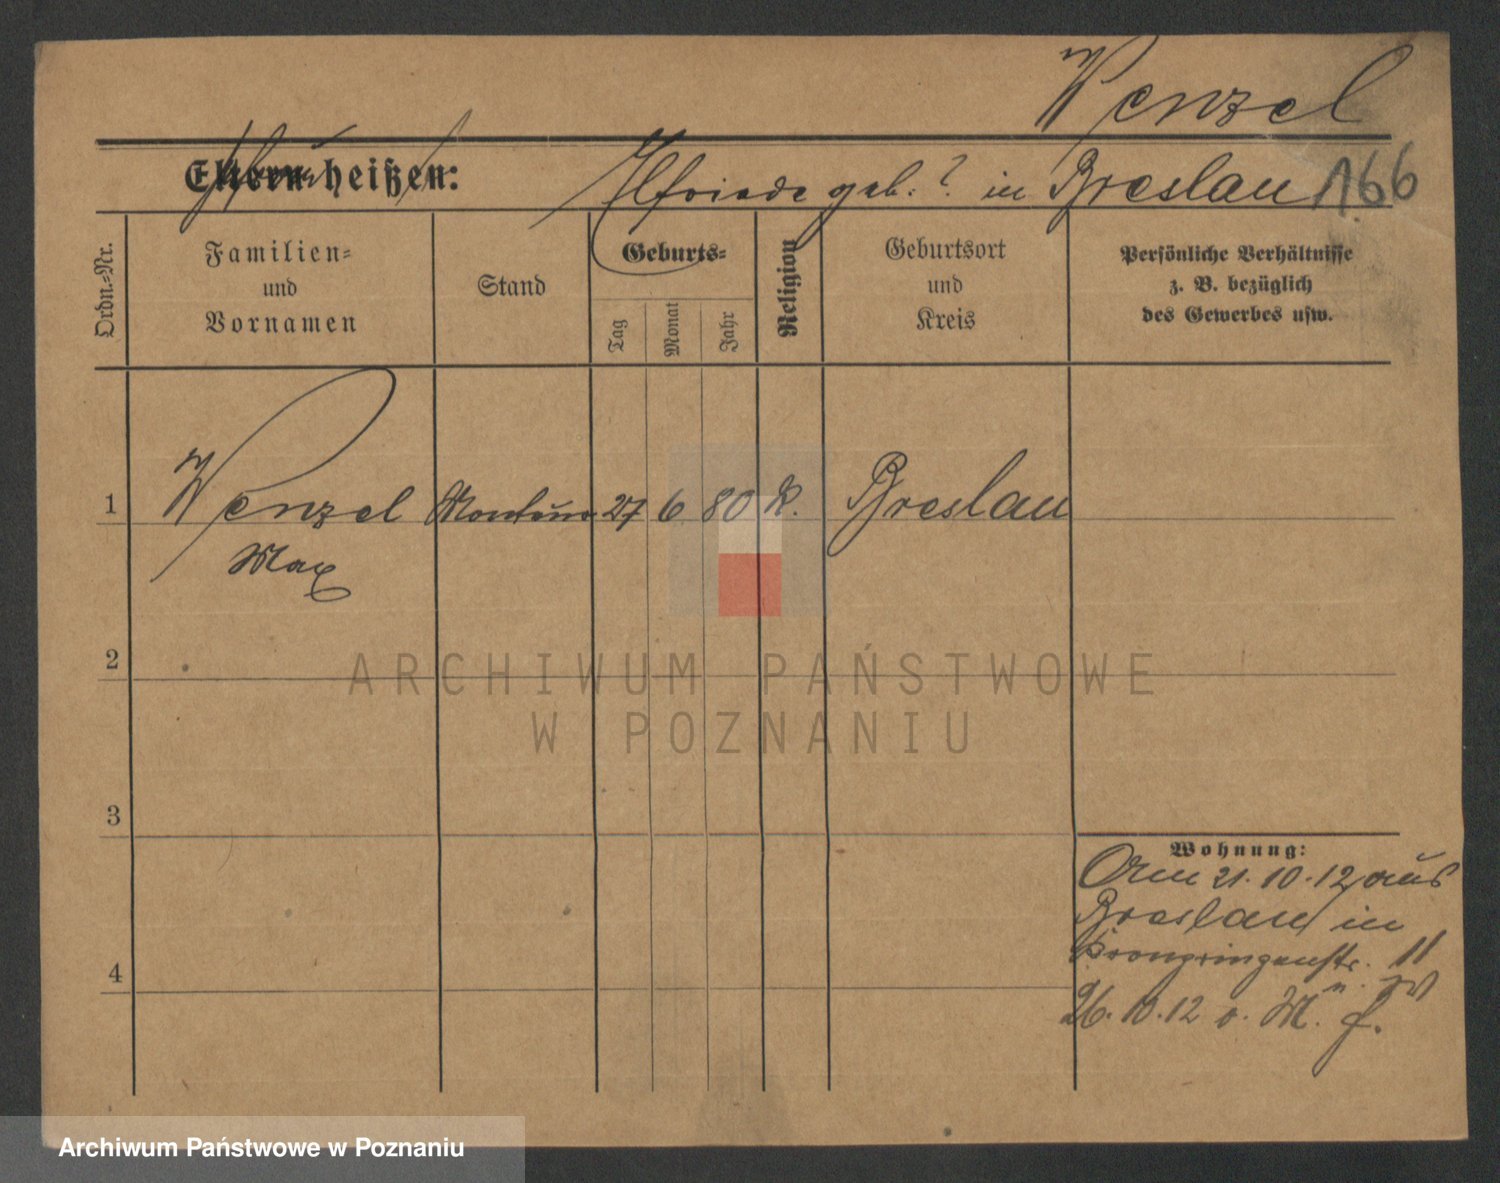 Wenzel
Eltern heißen: Elfriede geb. ? in Breslau 166
Ordn.=Nr.
Familien=
und
Vornamen
Stand
Geburts=
Tag
Monat
Jahr
Religion
Geburtsort
und
Kreis
Persönliche Verhältnisse
z. B. bezüglich
des Gewerbes usw.
1 Wenzel Monteur 27 6 80 K. Breslau
Max
2
3
4
Wohnung:
Am 21.10.12 aus
Breslau in
Kronprinzenstr. 11
26.10.12
ARCHIWUM PAŃSTWOWE
W POZNANIU
Archiwum Państwowe w Poznaniu